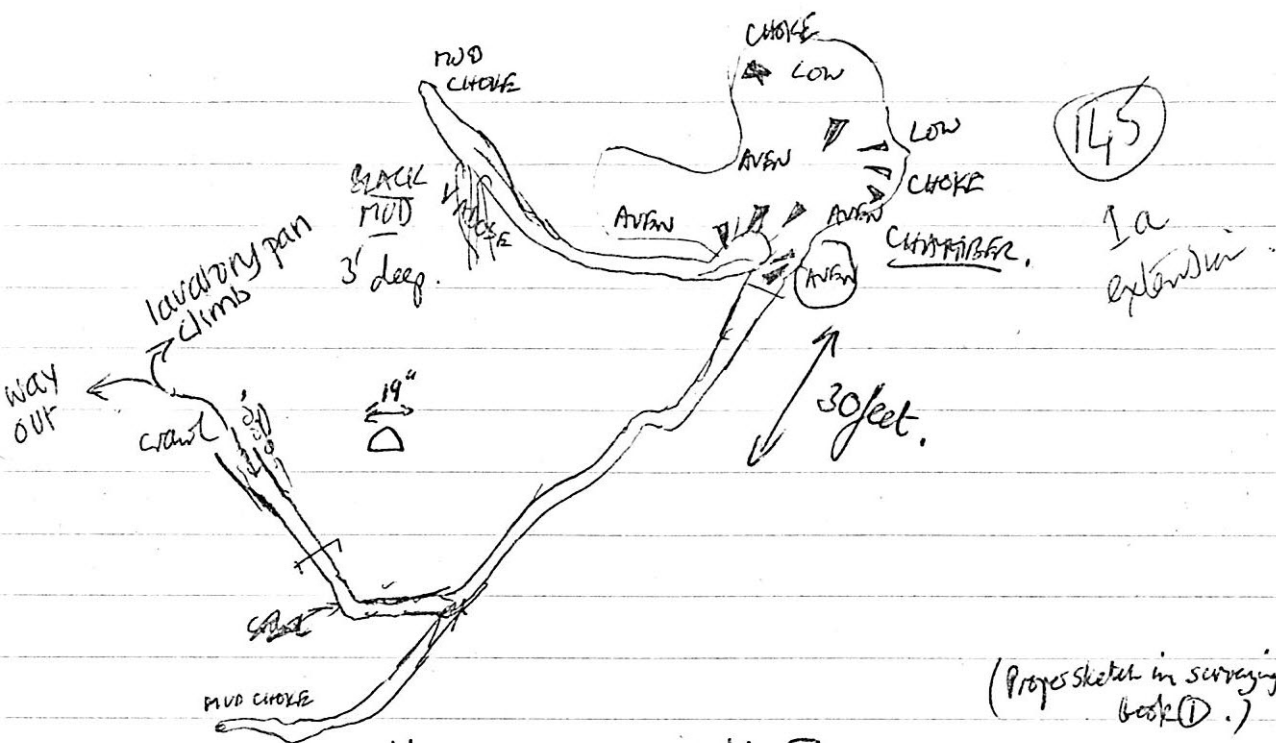 CHOKE
LOW
MUD
CHOKE
145
LOW
CHOKE
AVEN
BLACK
MUD
3' deep.
AVEN
AVEN
CHAMBER.
AVEN
1a
extension
lavatory pan
climb
way
out
crawl
19"
30 feet.
MUD CHOKE
(Proper sketch in surveying
book ①.)